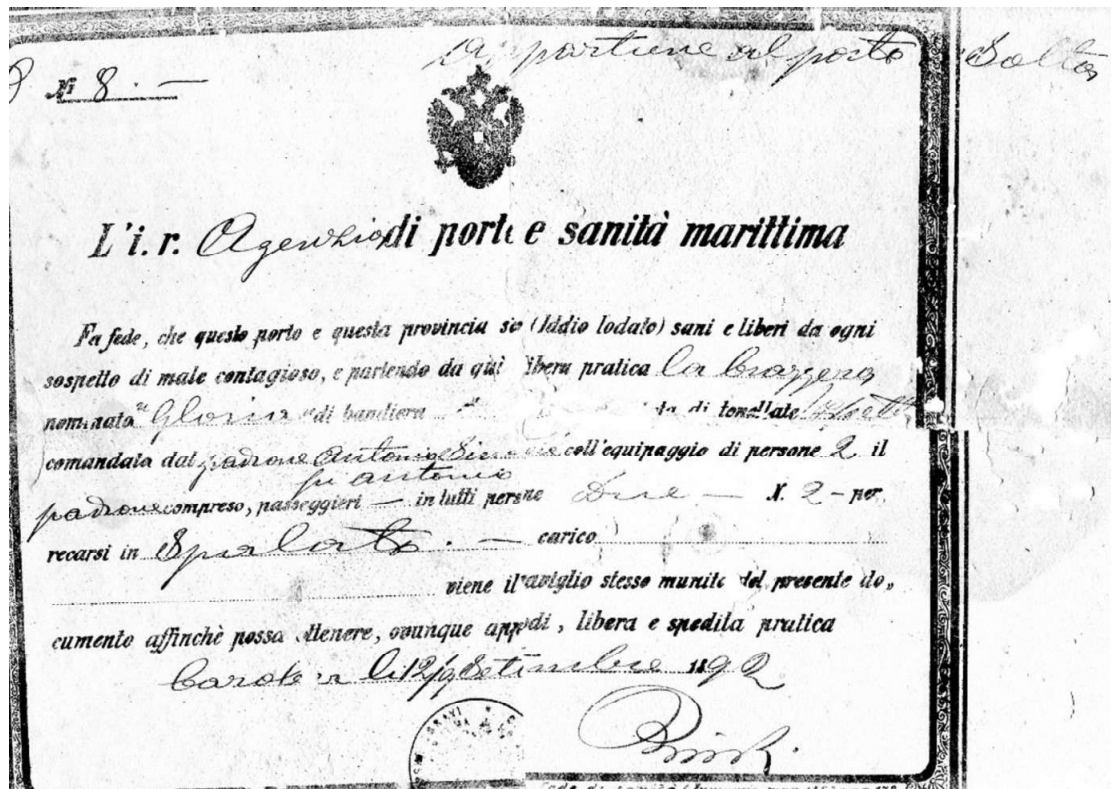 Appartiene al porto Solta
№ 8. —
L'i. r. Agenzia di porto e sanità marittima
Fa fede, che questo porto e questa provincia sio (Iddio lodato) sani e liberi da ogni
sospetto di male contagioso, e partendo da qui libera pratica la brazzera
nominata "Gloria" di bandiera di tonellate
comandata dal padrone Antonio coll'equipaggio di persone 2 il
fu Antonio
padrone compreso, passeggieri — in tutti persone Due — N. 2 — per
recarsi in Spalato. — carico
viene il naviglio stesso munito del presente do„
cumento affinchè possa ottenere, ovunque approdi, libera e spedita pratica
li 12/9 Settembre 1892